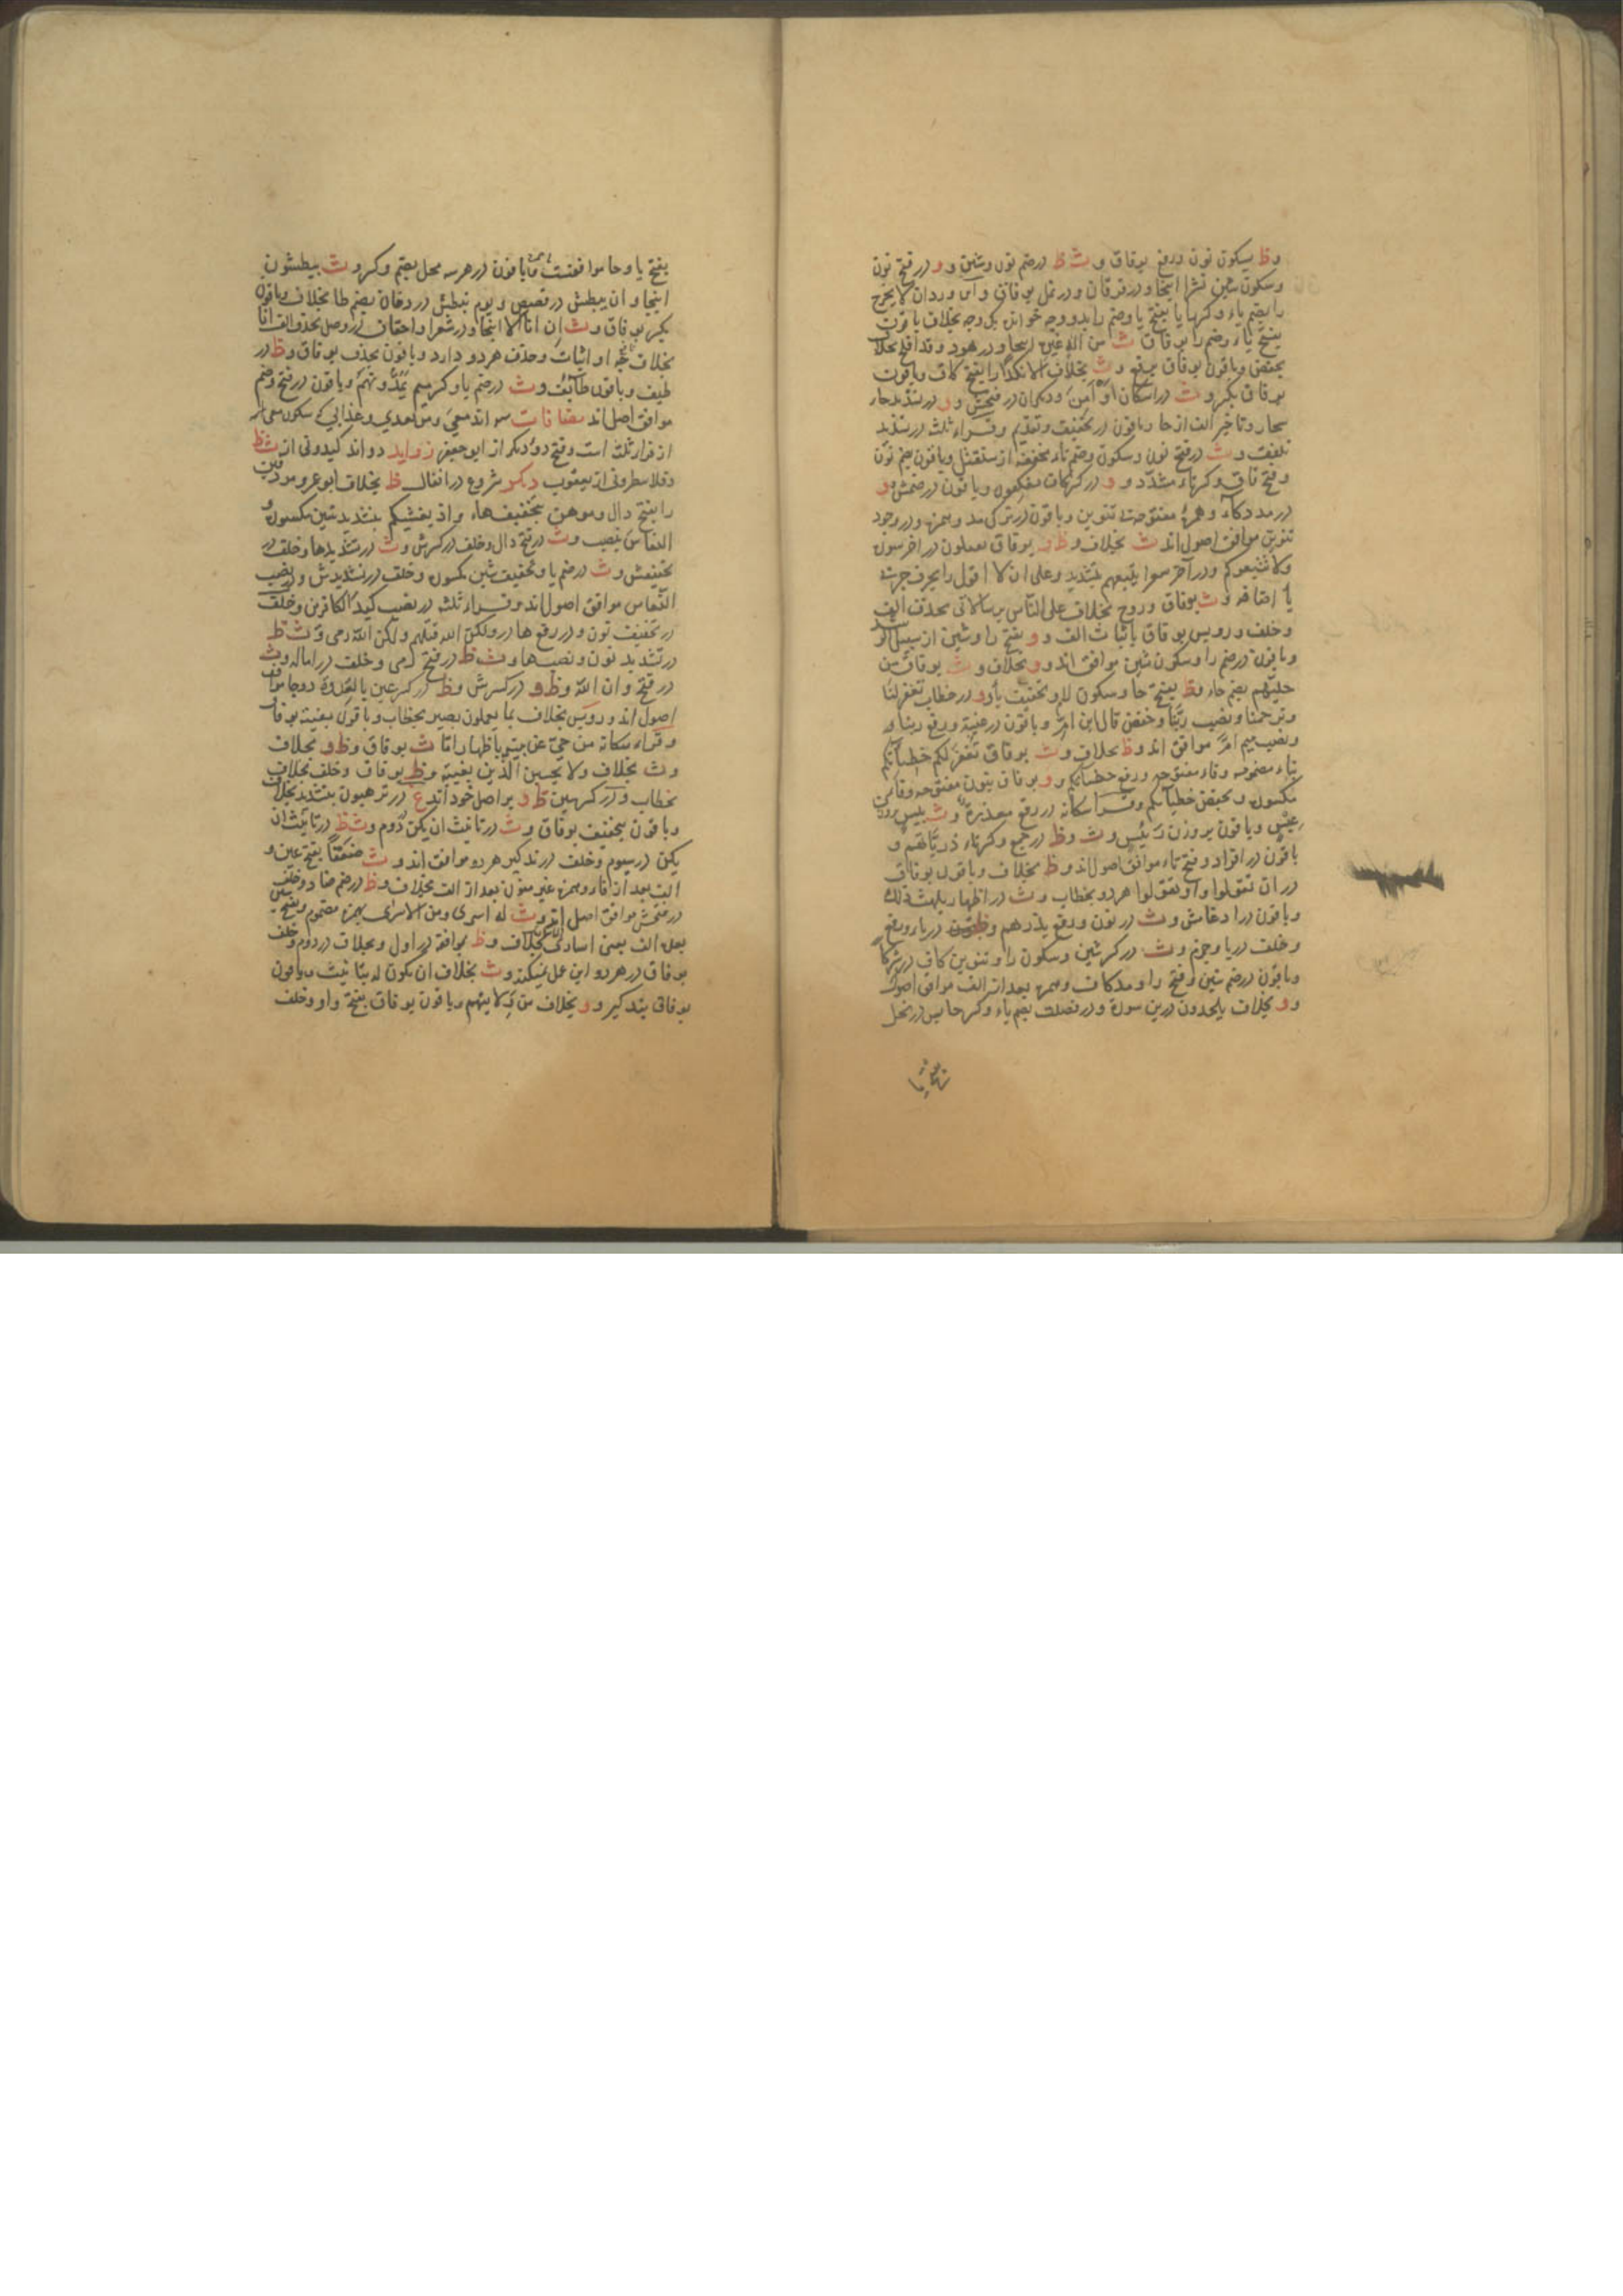 وظ بسکون نون ورفع بوفاق وث ظ در ضم نون وشین وو در فتح نون
وسکون شین نشرا اینجا ودر فرقان ودر نمل بوفاق وابن وردان لا یخرج
را بضم یاء وکسر را یا بفتح یا وضم را بدو وجه خواند یک وجه بخلاف باقون
بفتح یاء وضم را بوفاق ث من اله غیره اینجا ودر هود وقد افلح بخلاف
بخفض وباقون بوفاق برفع وث بخلاف الا نکدا را بفتح کاف وباقون
بوفاق بکسر وث در اسکان او امن در فتحش وو در تشدید حاء
سحار وتاخیر الف از حا وباقون در تخفیف وتقدیم وقراء ثلث در تشدید
تلقف وث در فتح نون وسکون وضم تاء مخففه از سنقتل وباقون بضم نون
وفتح قاف وکسر تاء مشدد وو در کسر کاف یعکفون وباقون در ضمش وو
در مد دکاء وهمزه مفتوحه بی تنوین وباقون در ترک مد وهمزه ودر وجود
تنوین موافق اصول اند ث بخلاف وظ بوفاق یعملون در آخر سوره
ولا یتبعوکم ودر آخر سورا یتبعهم بتشدید وعلی ان لا اقول را بحرف جر بی
یا اضافه وث بوفاق وروح بخلاف علی الناس برسالاتی بحذف الف
وخلف ورویس بوفاق باثبات الف وو بفتح را وشین از سبیل الرشد
وباقون در ضم را وسکون شین موافق اند وو بخلاف وث بوفاق من
حلیهم بضم حاء وظ بفتح حا وسکون لام وتخفیف یا وو در خطاب تغفر لنا
وترحمنا ونصب ربنا وخفض قال ابن ام وباقون در غیبه ورفع ربنا و
ونصب میم ام موافق اند وظ بخلاف وث بوفاق تغفر لکم خطیاتکم
بتاء مضمومه وفاء مفتوحه ورفع خطیاتکم وو بوفاق بنون مفتوحه وفاء
مکسوره وبخفض خطیاتکم وقراء سکانه در رفع معذرة وث بیس بروزن
عیس وباقون بر وزن رئیس وث وظ در جمع وکسر تاء ذریاتهم و
باقون در افراد وفتح تاء موافق اصول اند وظ بخلاف وباقون بوفاق
در ان تقولوا واو تقولوا هر دو بخطاب وث در اظهار یلهث ذلک
وباقون در ادغامش وث در نون ورفع یذرهم وظ در یاء ورفع
وخلف در یا وجزم وث در کسر شین وسکون را وتنوین کاف در شرکا
وباقون در ضم شین وفتح را ومد کاف وهمزه بعد از الف موافق اصول
وو بخلاف یلحدون درین سوره ودر فصلت بضم یاء وکسر حا پس در نحل
بفتح یا
بفتح یا وحا موافقت وباقون در هر سه محل بضم وکسر وث یبطشون
اینجا وان یبطش در قصص ویوم نبطش در دخان بضم طا بخلاف وباقون
بکسر بوفاق وث ان انا الا اینجا ودر شعرا واحقاف در وصل بحذف الف انا
بخلاف چه او اثبات وحذف هر دو دارد وباقون بحذف بوفاق وظ در
طیف وباقون طائف وث در ضم یا وکسر میم یمدونهم وباقون در فتح وضم
موافق اصل اند مضافات سه اند معی ومن بعدی وعذابی که سکون معی
از قراء ثلث است وفتح دو دیگر از ابو جعفر زواید دو اند کیدونی از ث ظ
وفلا تنظرونی از یعقوب ذکر شروع در انفال ظ بخلاف ابو عمرو مردفین
را بفتح دال وموهن بتخفیف هاء واذ یغشیکم بتشدید شین مکسوره و
النعاس بنصب وث در فتح دال وخلف در کسرش وث در تشدید ها وخلف در
تخفیفش وث در ضم یا وتخفیف شین مکسوره وخلف در تشدیدش ودر نصب
النعاس موافق اصول اند وقراء ثلث در نصب کید الکافرین وخلف
در تخفیف نون ودر رفع ها در ولکن الله قتلهم ولکن الله رمی وث ظ
در تشدید نون ونصب ها وث ظ در فتح رمی وخلف در اماله وث
در فتح وان الله وظ وو در کسرش وظ در کسر عین بالعدوة دو جا موافق
اصول اند ورویس بخلاف بما یعملون بصیر بخطاب وباقون بغیبه بوفاق
وقراء سکانه من حیی عن بینه باظهار اما ث بوفاق وظ وو بخلاف
وث بخلاف ولا یحسبن الذین بغیبه وظ بوفاق وخلف بخلاف
بخطاب ودر کسر همین ظ وو بر اصل خود اند غ در ترهبون بتشدید بخلاف
وباقون بتخفیف بوفاق وث در تانیث ان یکن دوم وث ظ در تانیث ان
یکن در سیوم وخلف در تذکیر هر دو موافق اند وث ضعفا بفتح عین و
الف بعد از فاء وهمزه غیر منون بعد از الف بخلاف وظ در ضم ضاد وخلف
در فتحش موافق اصل اند وث له اسری ومن الاسری بهمزه مضموم وبفتح سین
بعده الف یعنی اساری بخلاف وظ بوافقه در اول وبخلاف در دوم وخلف
بوفاق در هر دو این عمل نمیکند وث بخلاف ان یکون له بتانیث وباقون
بوفاق بتذکیر وو بخلاف من ولایتهم وباقون بوفاق بفتح واو وخلف